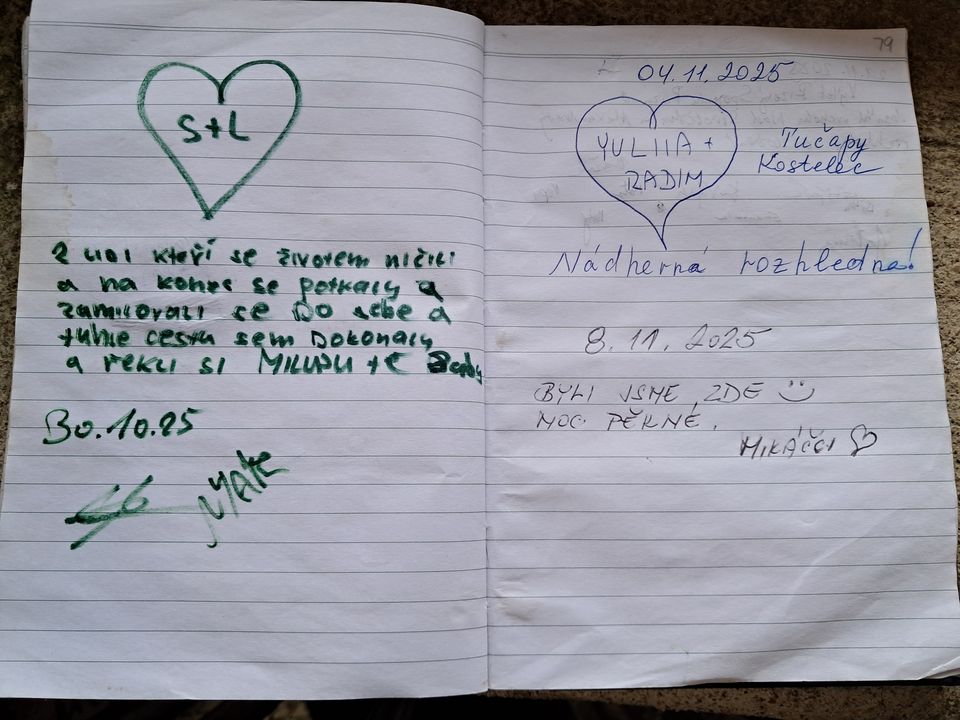 S+L
2 lidi kteří se životem ničili
a na konec se potkaly a
zamilovali se DO sebe a
tuhle cestu sem DOKONALY
a řekli si MILUJU tě
30.10.25
79
04.11.2025
YULIIA +
RADIM
Tučapy
Kostelec
Nádherná rozhledna!
8.11.2025
BYLI JSME ZDE
MOC PĚKNÉ.
MIKÁČCI